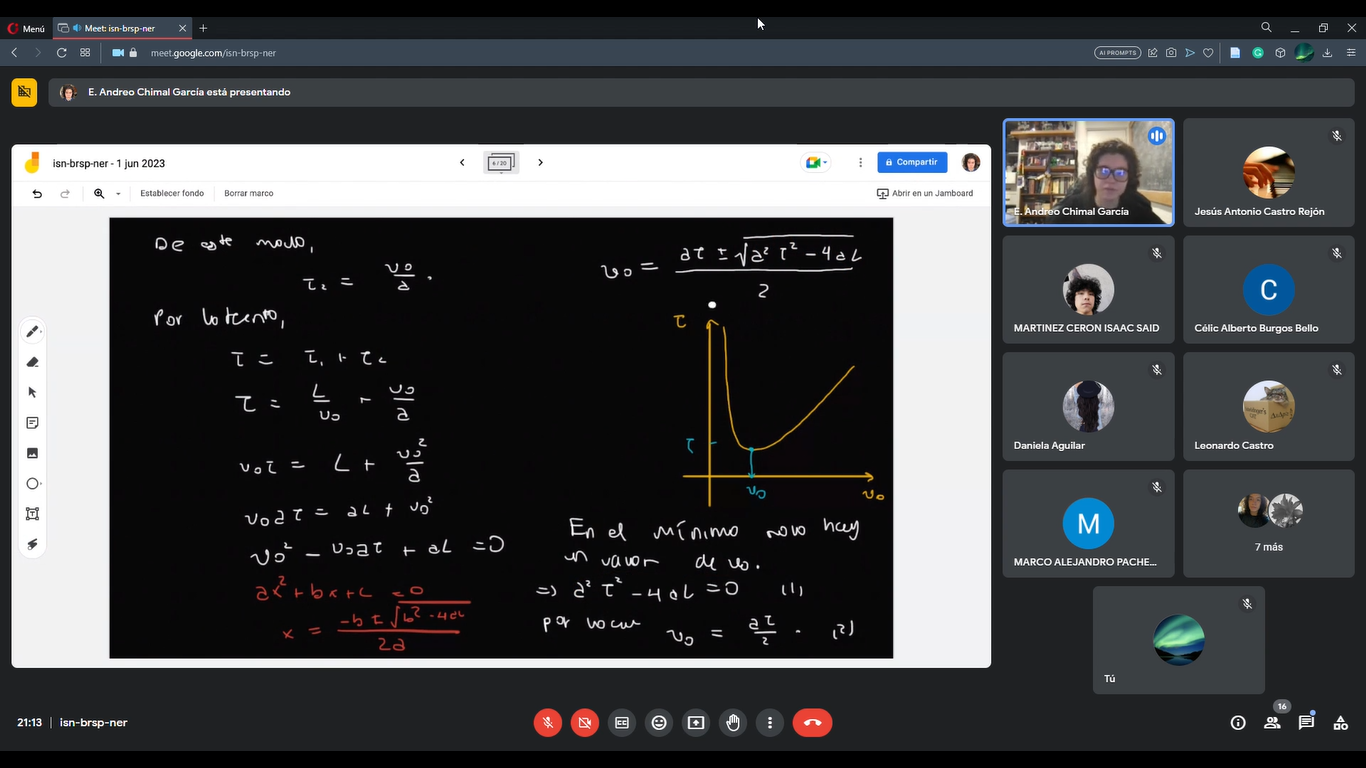 Menú
Meet: isn-brsp-ner
meet.google.com/isn-brsp-ner
AI PROMPTS
E. Andreo Chimal García está presentando
isn-brsp-ner - 1 jun 2023
6 / 20
Compartir
Establecer fondo
Borrar marco
Abrir en un Jamboard
De este modo,
τ₂ = v₀/a .
Por lo tanto,
τ = τ₁ + τ₂
τ = L/v₀ + v₀/a
v₀τ = L + v₀²/a
v₀aτ = aL + v₀²
v₀² - v₀aτ + aL = 0
ax² + bx + c = 0
x = (-b ± √(b² - 4ac))/2a
v₀ = (aτ ± √(a²τ² - 4aL))/2
τ
τ
v₀
v₀
En el mínimo solo hay
un valor de v₀.
=> a²τ² - 4aL = 0 (1)
por lo cual v₀ = aτ/2 . (2)
E. Andreo Chimal García
Jesús Antonio Castro Rejón
MARTINEZ CERON ISAAC SAID
C
Célic Alberto Burgos Bello
Daniela Aguilar
Leonardo Castro
M
MARCO ALEJANDRO PACHE...
7 más
Tú
21:13 | isn-brsp-ner
16